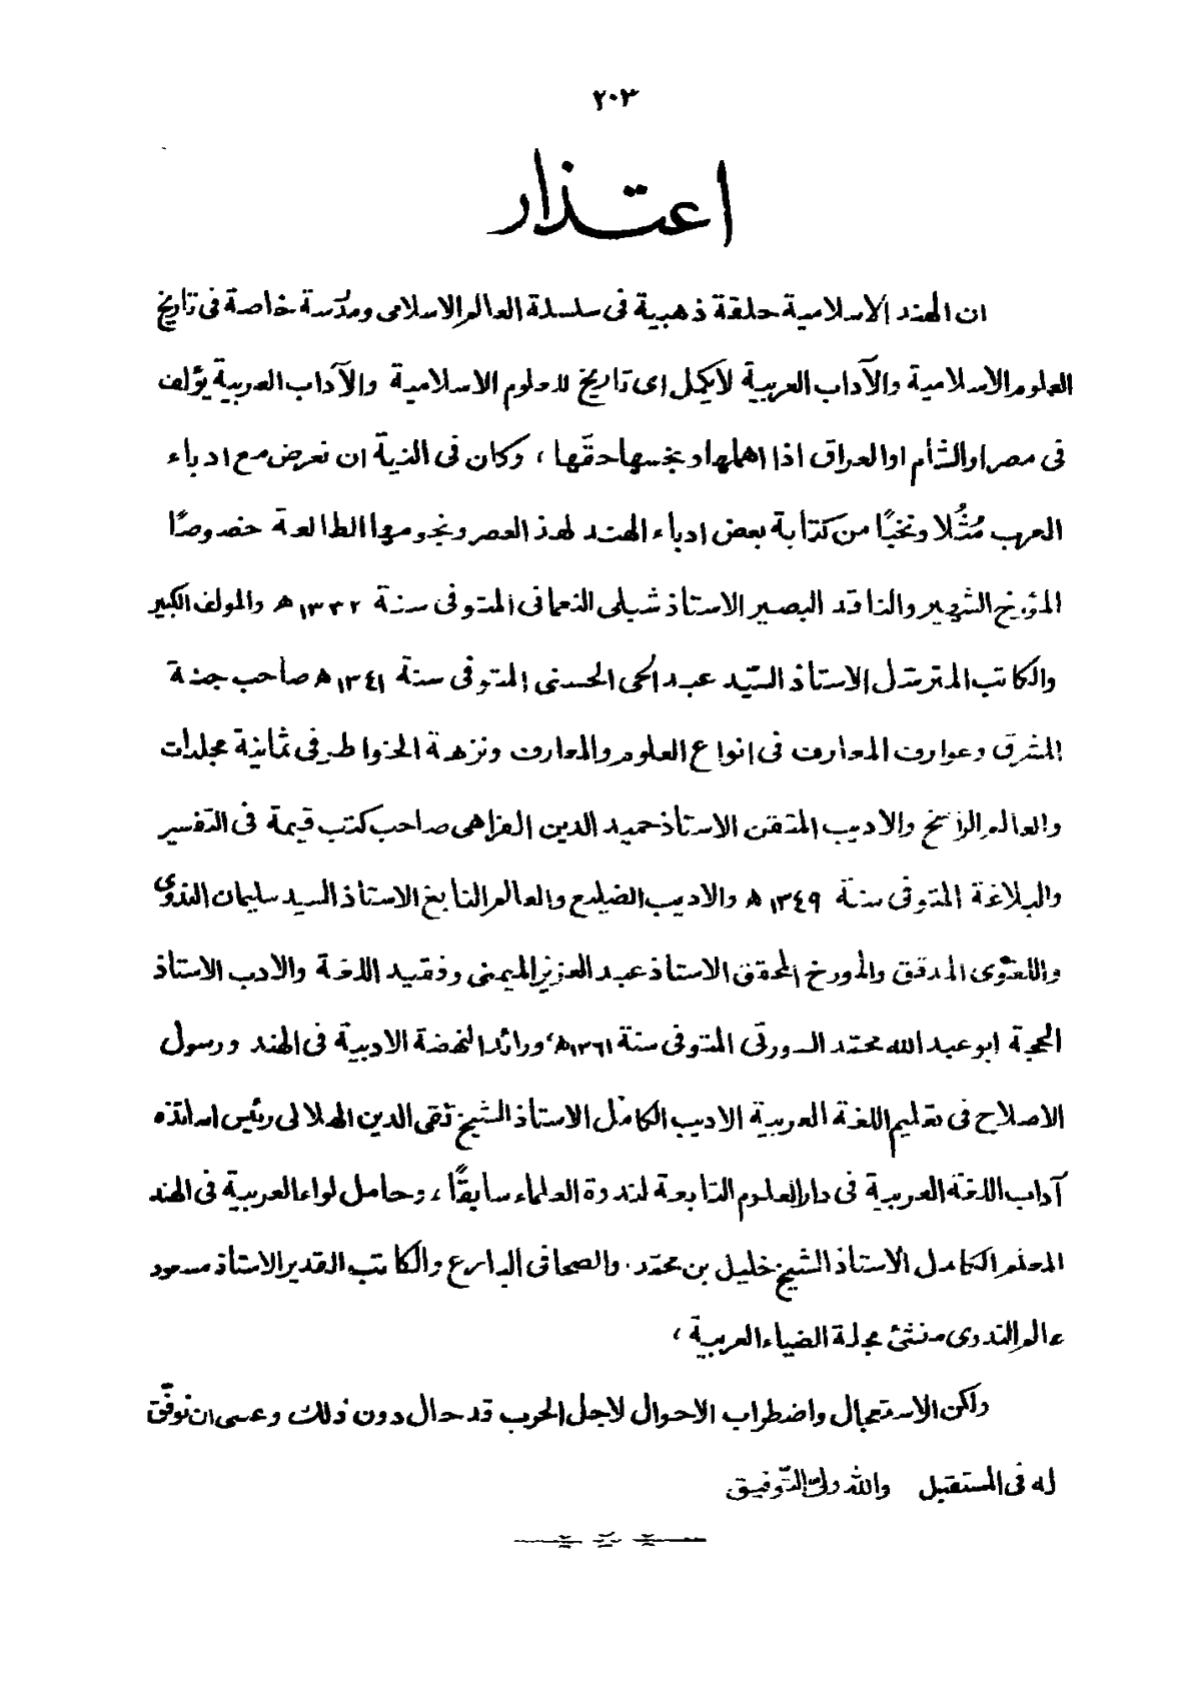 ٢٠٣
اعتذار
ان الهند الاسلامية حلقة ذهبية فى سلسلة العالم الاسلامى ومدرسة خاصة فى تاريخ
العلوم الاسلامية والآداب العربية لايكمل اى تاريخ للعلوم الاسلامية والآداب العربية يؤلف
فى مصر او الشأم او العراق اذا اهملها وبخسها حقها ، وكان فى النية ان نعرض مع ادباء
العرب مُثُلا ونخبًا من كتابة بعض ادباء الهند لهذ العصر ونجومها الطالعة خصوصًا
المؤرخ الشهير والناقد البصير الاستاذ شبلى النعمانى المتوفى سنة ١٣٣٢ھ والمولف الكبير
والكاتب المترسل الاستاذ السيّد عبد الحى الحسنى المتوفى سنة ١٣٤١ھ صاحب جنة
المشرق وعوارف المعارف فى انواع العلوم والمعارف ونزهة الخواطر فى ثمانية مجلدات
والعالم الراسخ والاديب المتقن الاستاذ حميد الدين الفراهى صاحب كتب قيمة فى التفسير
والبلاغة المتوفى سنة ١٣٤٩ھ والاديب الضليع والعالم النابغ الاستاذ السيد سليمان الندوى
واللغوى المدقق والمورخ المحقق الاستاذ عبد العزيز الميمنى وفقيد اللغة والادب الاستاذ
الحجة ابو عبد الله محمّد السورتى المتوفى سنة ١٣٦١ھ، ورائد النهضة الادبية فى الهند ورسول
الاصلاح فى تعليم اللغة العربية الاديب الكامل الاستاذ الشيخ تقى الدين الهلالى رئيس اساتذه
آداب اللغة العربية فى دار العلوم التابعة لندوة العلماء سابقًا ، وحامل لواء العربية فى الهند
المعلم الكامل الاستاذ الشيخ خليل بن محمّد . والصحافى البارع والكاتب القدير الاستاذ مسعود
عالم الندوى منشئ مجلة الضياء العربية ،
ولكن الاستعجال واضطراب الاحوال لاجل الحرب قد حال دون ذلك وعسى ان نوفّق
له فى المستقبل والله ولىّ التّوفيق